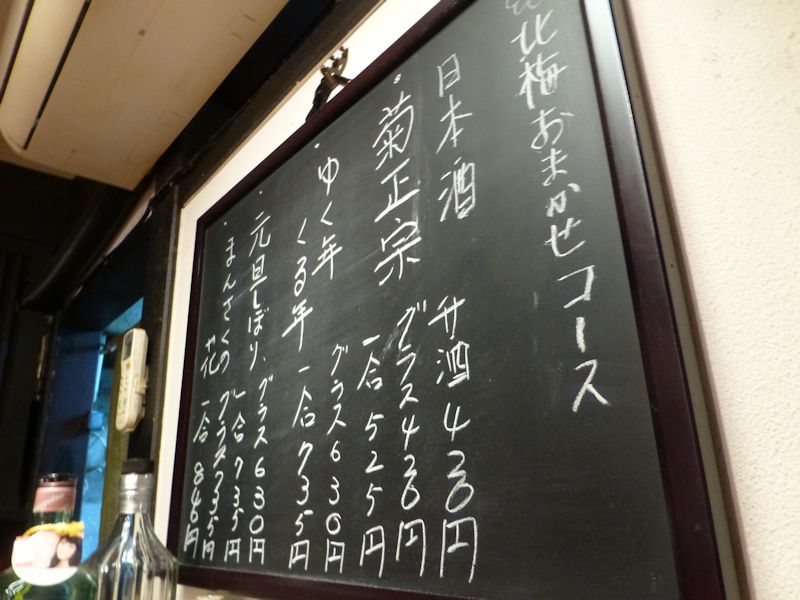 北梅おまかせコース
日本酒
升酒430円
・菊正宗
グラス430円
一合525円
・ゆく年
くる年
グラス630円
一合735円
・元旦しぼり、グラス630円
一合735円
・まんさくの
花
グラス735円
一合840円